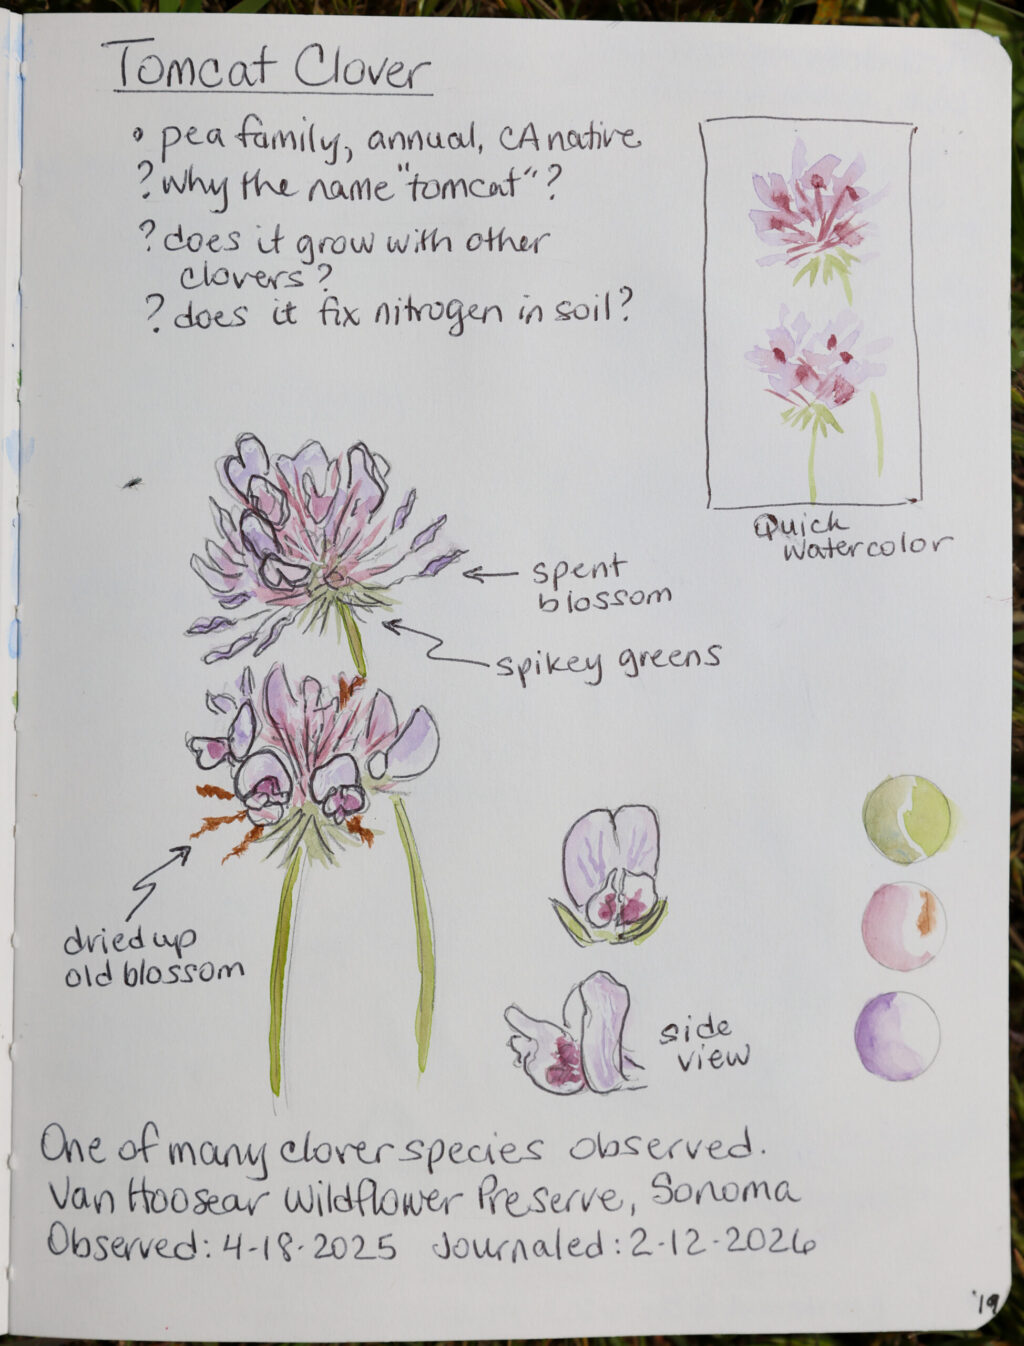 Tomcat Clover
• pea family, annual, CA native
? why the name "tomcat"?
? does it grow with other
clovers?
? does it fix nitrogen in soil?
Quick
watercolor
spent
blossom
spikey greens
dried up
old blossom
side
view
One of many clover species observed.
Van Hoosear Wildflower Preserve, Sonoma
Observed: 4-18-2025 Journaled: 2-12-2026
'19